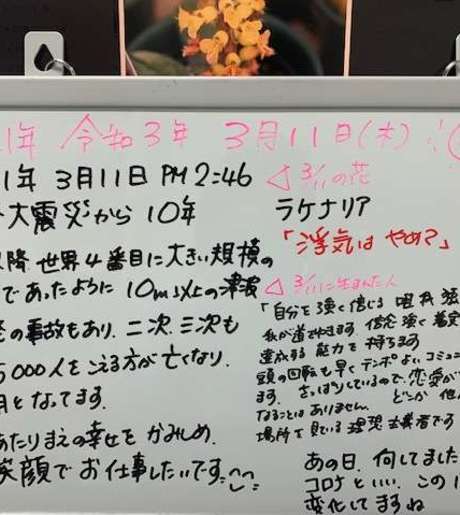 1年 令和3年 3月11日(木)
1年 3月11日 PM 2:46
大震災から10年
以降 世界4番目に大きい規模の
であったように 10m以上の津波
の事故もあり、二次、三次も
5000人をこえる方が亡くなり、
月となってます。
あたりまえの幸せを かみしめ、
笑顔でお仕事したいです
◁ 3/11の花
ラケナリア
「浮気は やめて?」
◁ 3/11に生まれた人
「自分を強く信じる 唯我独
我が道でいきます。信念強く着実
達成する能力を持ちます。
頭の回転も早くテンポよいコミュニ
ます。さっぱりしているので、恋愛が
なることはありません。どこか 他
場所を見ている理想主義者です
あの日、何してました
コロナといい、この1
変化してますね